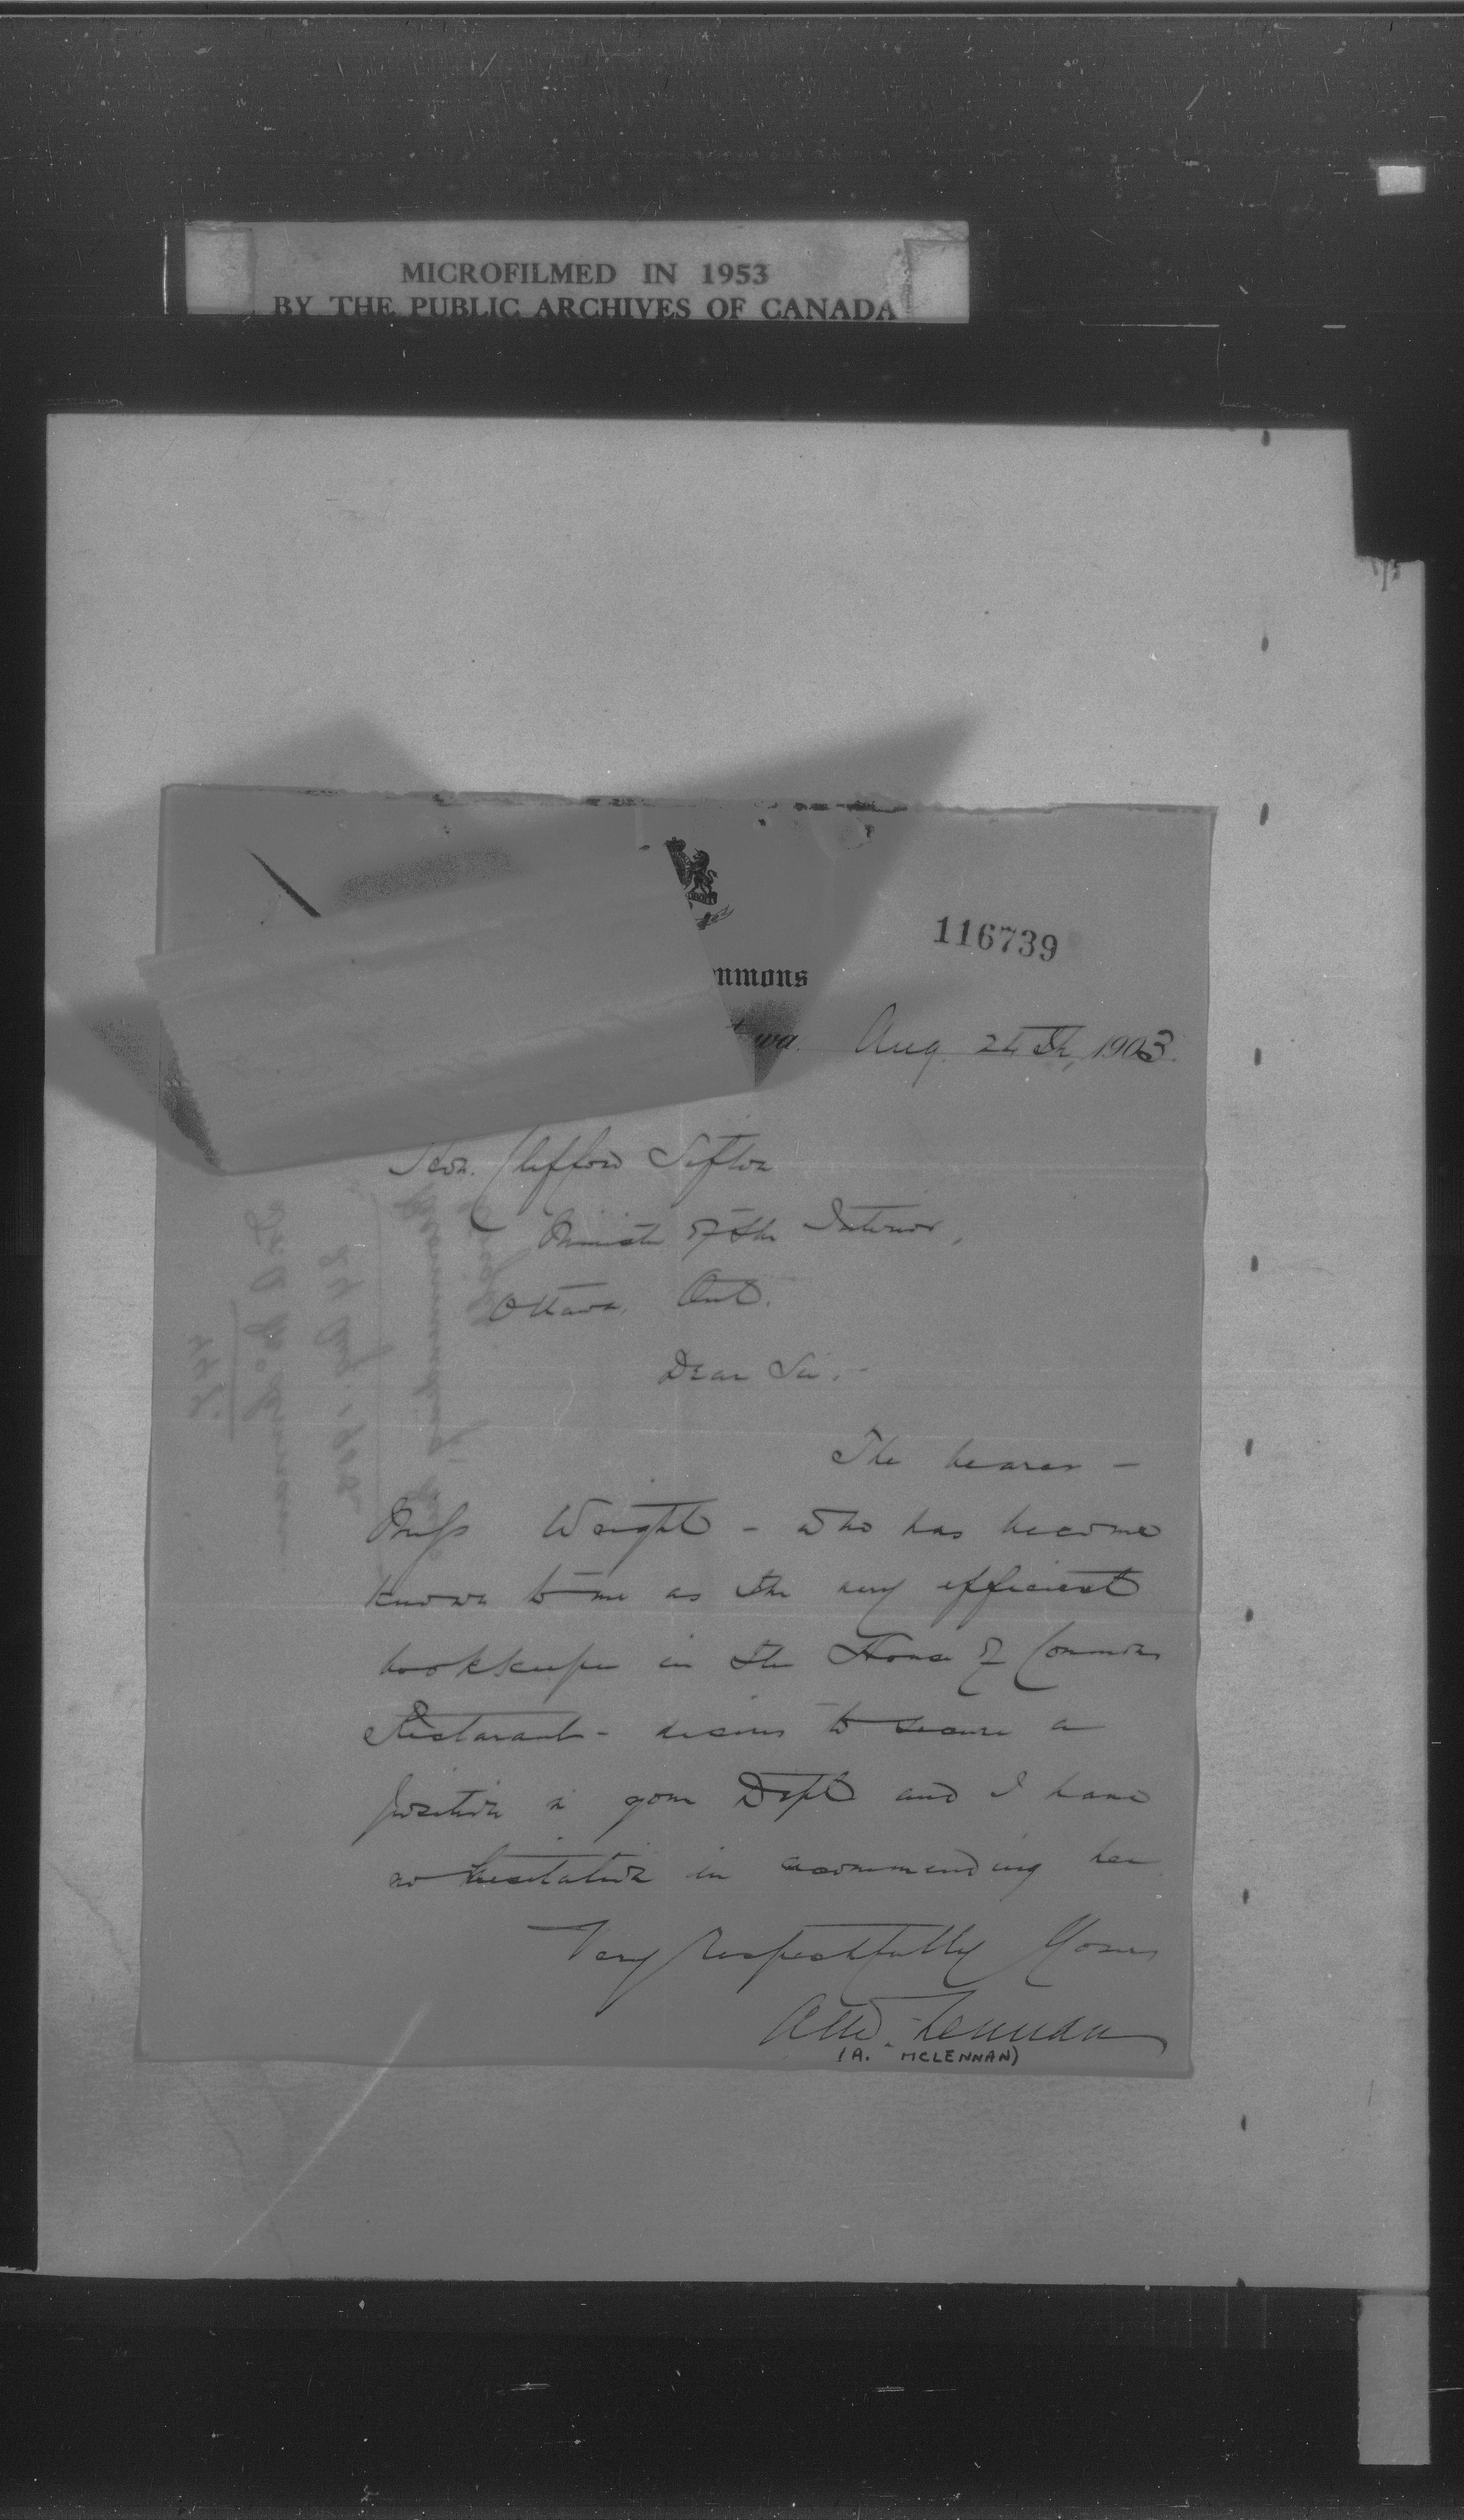 MICROFILMED IN 1953
BY THE PUBLIC ARCHIVES OF CANADA
116739
mmons
wa. Aug. 24th, 1903.
Hon. Clifford Sifton
Minister of the Interior,
Ottawa, Ont.
Dear Sir,-
The bearer -
Miss Wright - who has become
known to me as the very efficient
bookkeeper in the House of Commons
Restaraunt - desires to secure a
position in your Dept and I have
no hesitation in recommending her
Very respectfully Yours
A McLennan
(A. MCLENNAN)